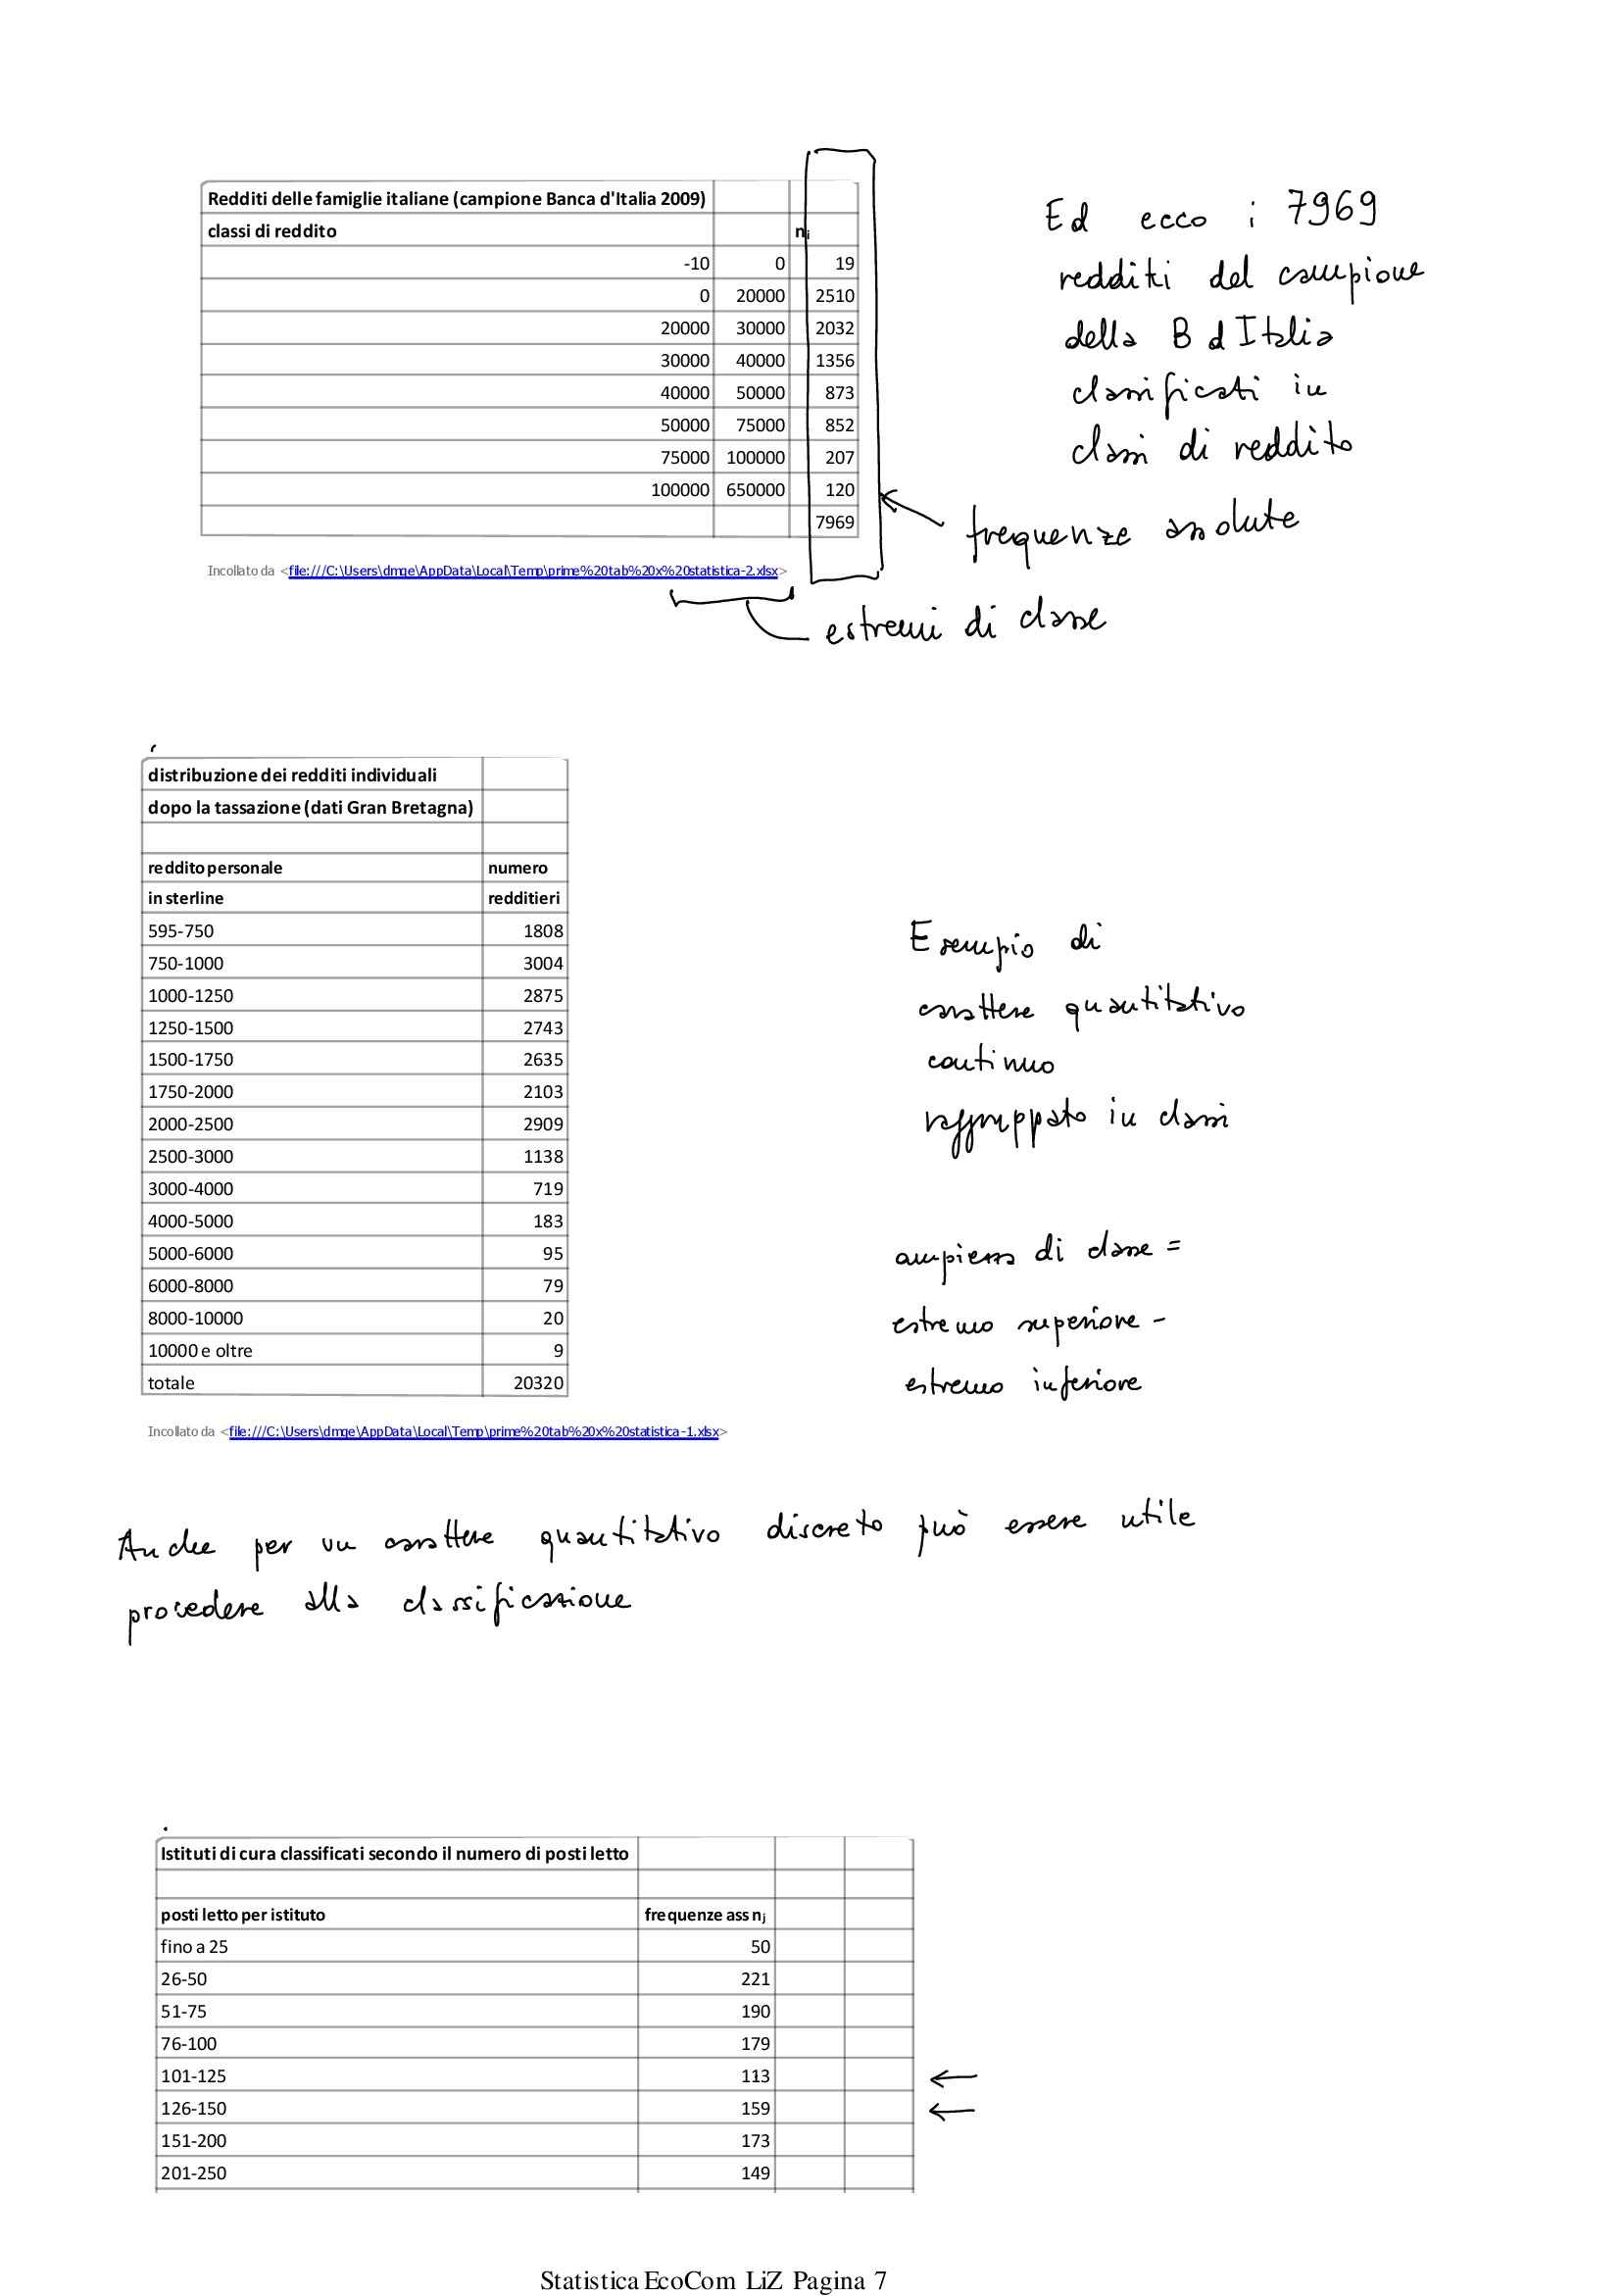 Redditi delle famiglie italiane (campione Banca d'Italia 2009)
classi di reddito nᵢ
-10 0 19
0 20000 2510
20000 30000 2032
30000 40000 1356
40000 50000 873
50000 75000 852
75000 100000 207
100000 650000 120
7969
Incollato da <file:///C:\Users\dmge\AppData\Local\Temp\prime%20tab%20x%20statistica-2.xlsx>
Ed ecco i 7969
redditi del campione
della B d Italia
classificati in
classi di reddito
frequenze assolute
estremi di classe
distribuzione dei redditi individuali
dopo la tassazione (dati Gran Bretagna)
reddito personale numero
in sterline redditieri
595-750 1808
750-1000 3004
1000-1250 2875
1250-1500 2743
1500-1750 2635
1750-2000 2103
2000-2500 2909
2500-3000 1138
3000-4000 719
4000-5000 183
5000-6000 95
6000-8000 79
8000-10000 20
10000 e oltre 9
totale 20320
Incollato da <file:///C:\Users\dmge\AppData\Local\Temp\prime%20tab%20x%20statistica-1.xlsx>
Esempio di
carattere quantitativo
continuo
raggruppato in classi
ampiezza di classe =
estremo superiore -
estremo inferiore
Anche per un carattere quantitativo discreto può essere utile
procedere alla classificazione
Istituti di cura classificati secondo il numero di posti letto
posti letto per istituto frequenze ass nⱼ
fino a 25 50
26-50 221
51-75 190
76-100 179
101-125 113
126-150 159
151-200 173
201-250 149
Statistica EcoCom LiZ Pagina 7